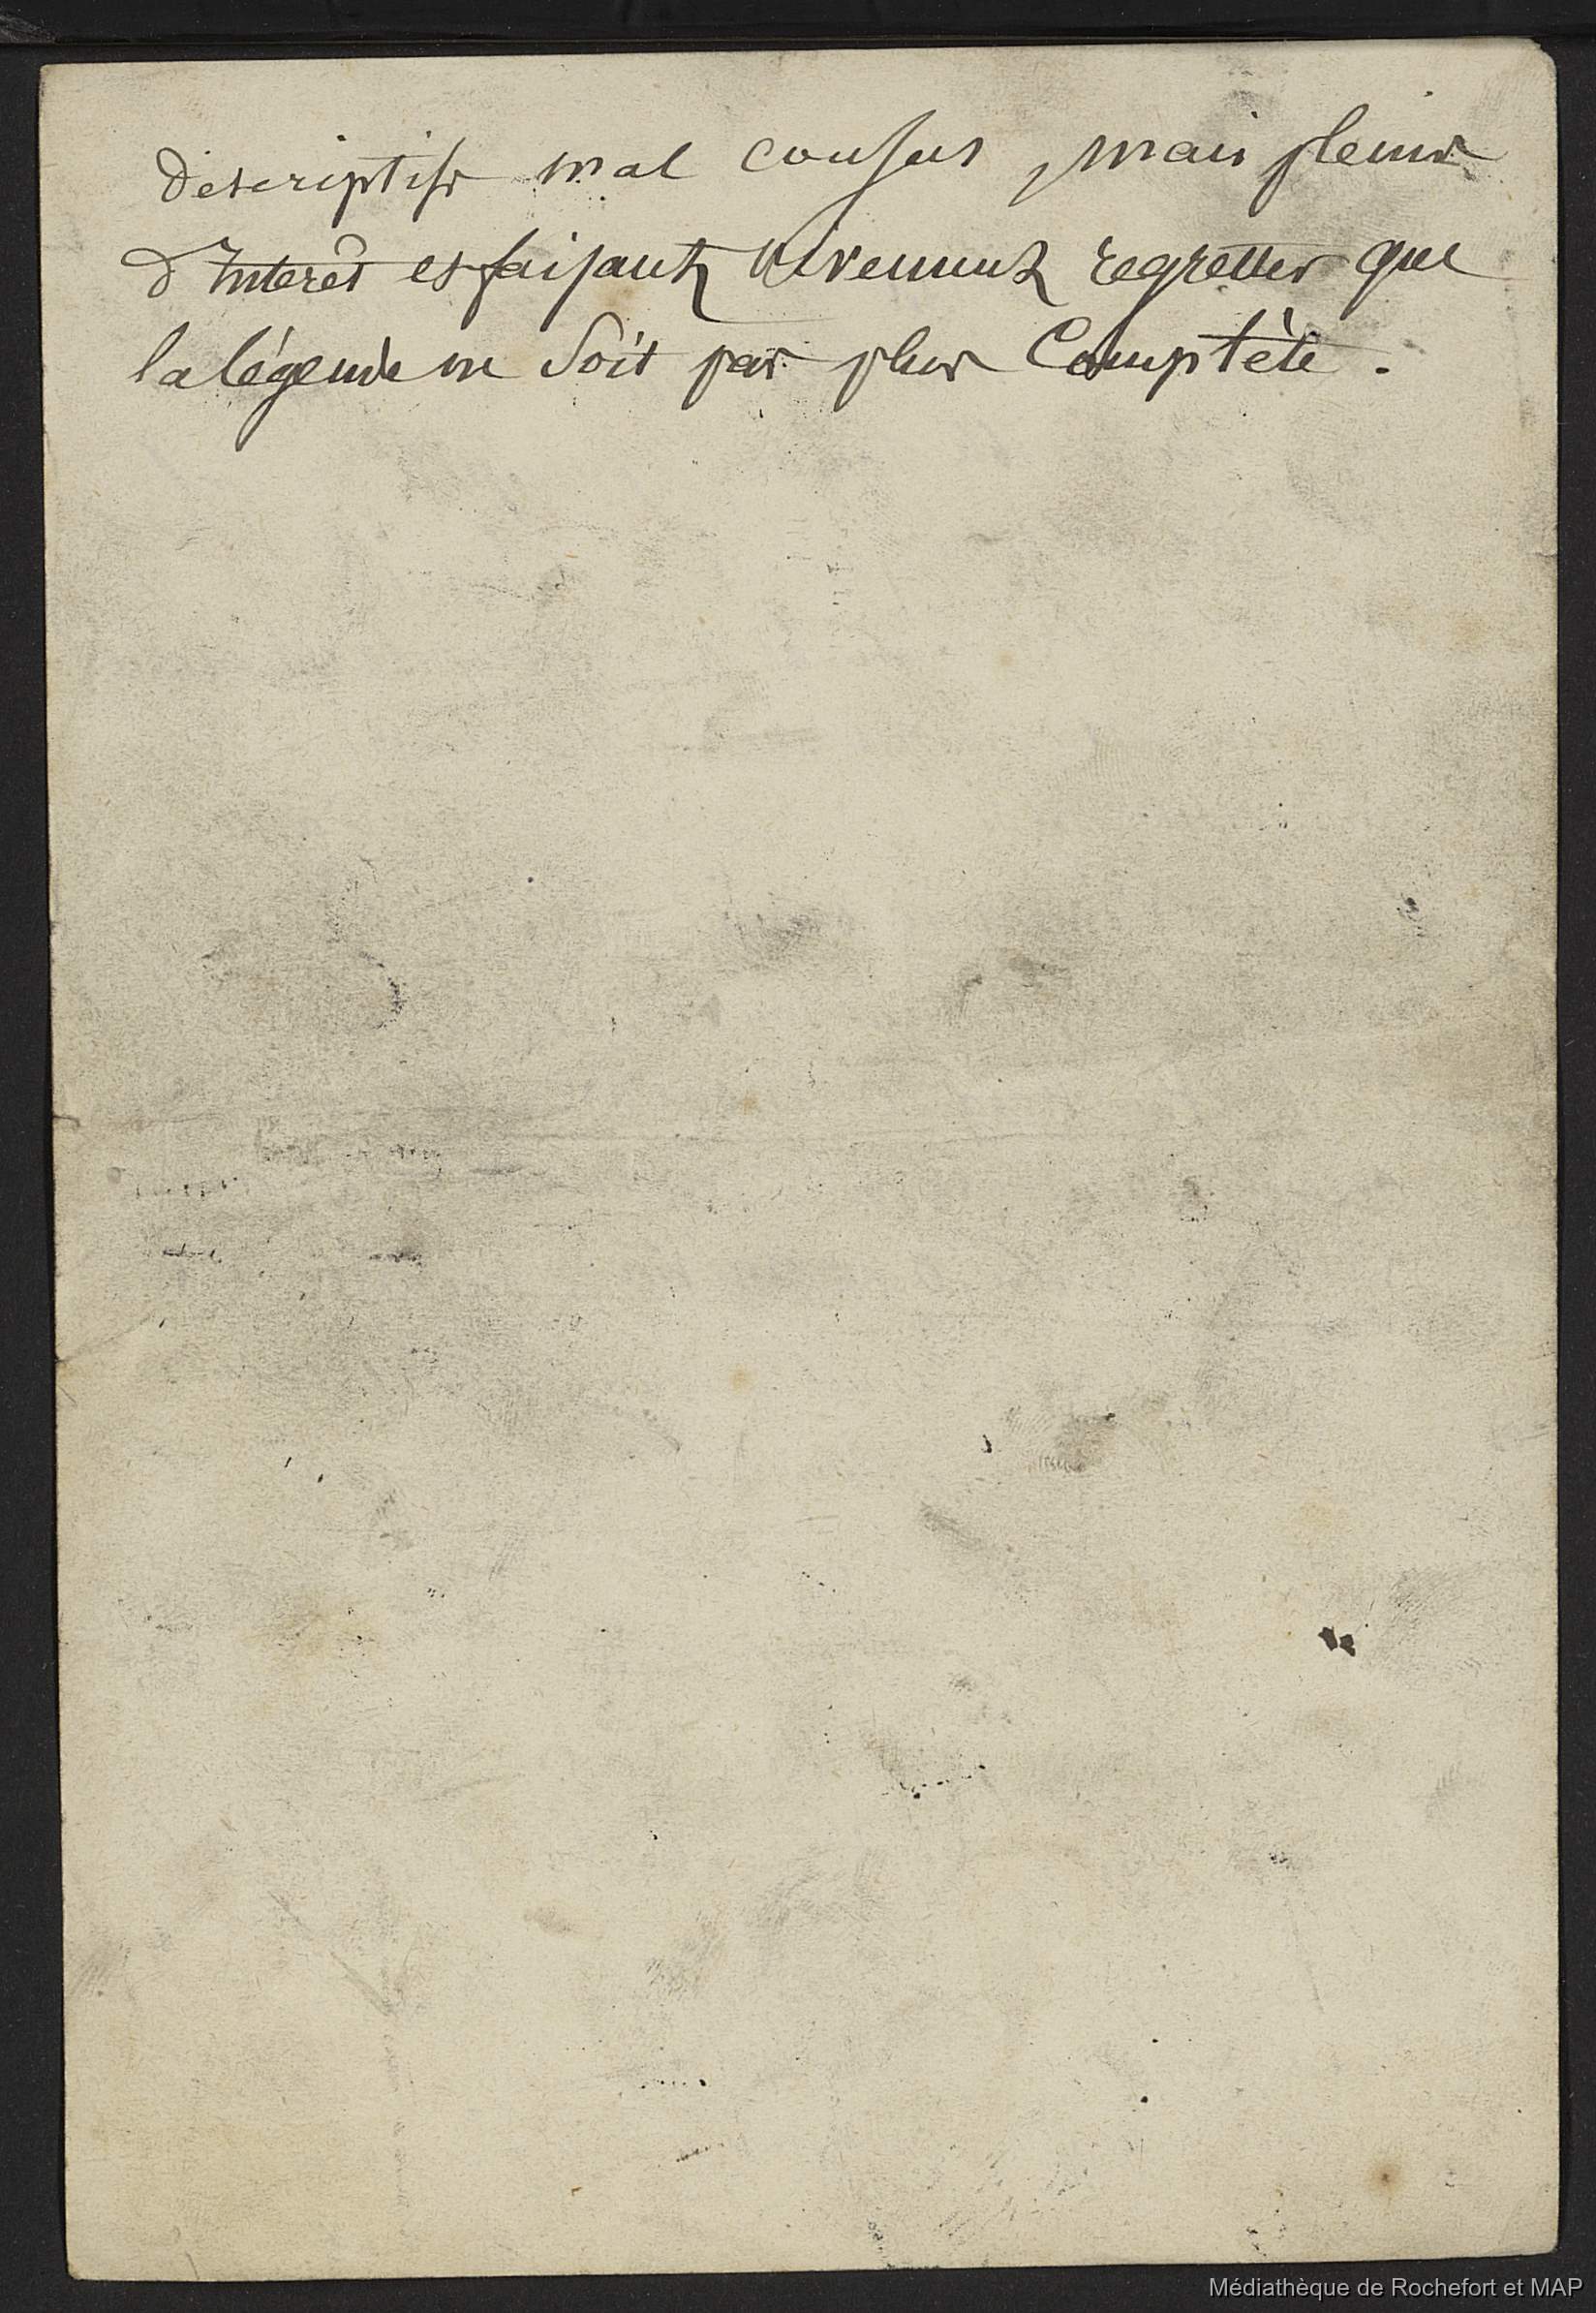 descriptifs mal cousus, mais pleins
d'Interêt et faisant vivement regretter que
la légende ne Soit pas plus Complète.
Médiathèque de Rochefort et MAP